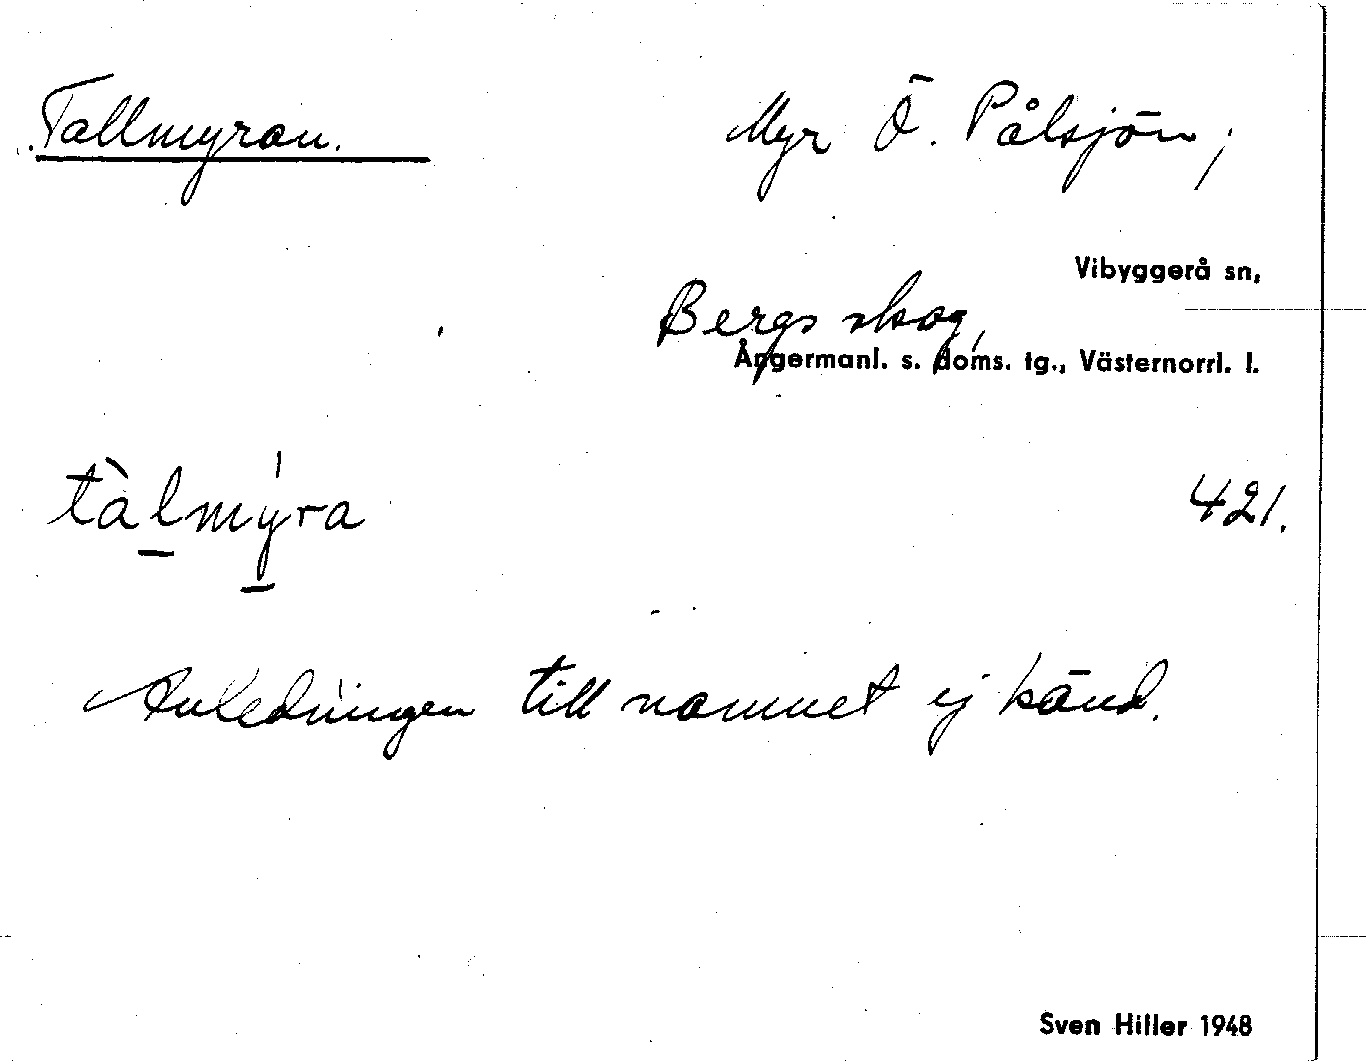 Tallmyran.
Myr Ö. Pålsjön,
Vibyggerå sn,
Bergs skog,
Ångermanl. s. doms. tg., Västernorrl. l.
tàlmy̍ra
421.
Anledningen till namnet ej känd.
Sven Hiller 1948